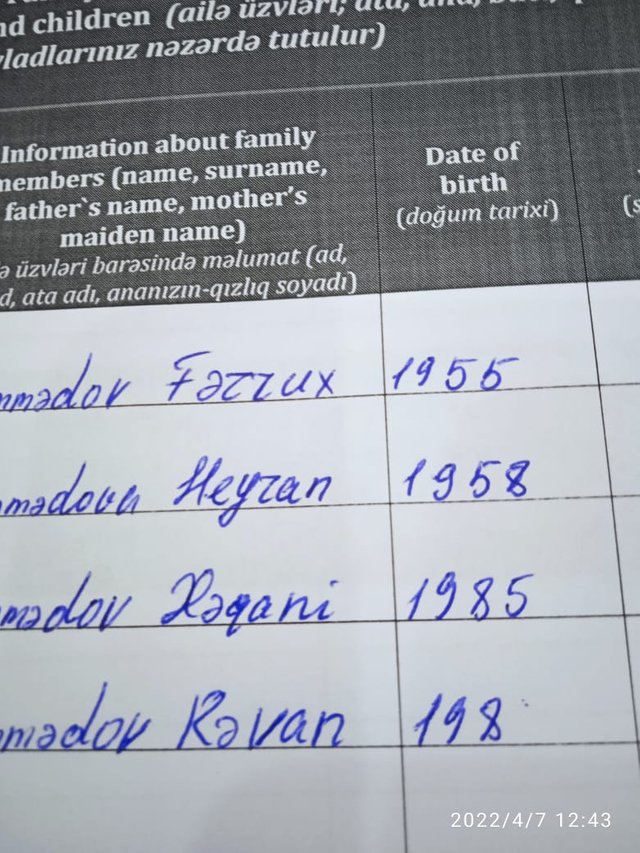 nd children (ailə üzvləri; ata, ana,
vladlarınız nəzərdə tutulur)
Information about family
members (name, surname,
father`s name, mother's
maiden name)
ə üzvləri barəsində məlumat (ad,
d, ata adı, ananızın-qızlıq soyadı)
Date of
birth
(doğum tarixi)
(s
mmədov Fərrux 1955
mədova Heyran 1958
mədov Xəqani 1985
mədov Rəvan 198
2022/4/7 12:43